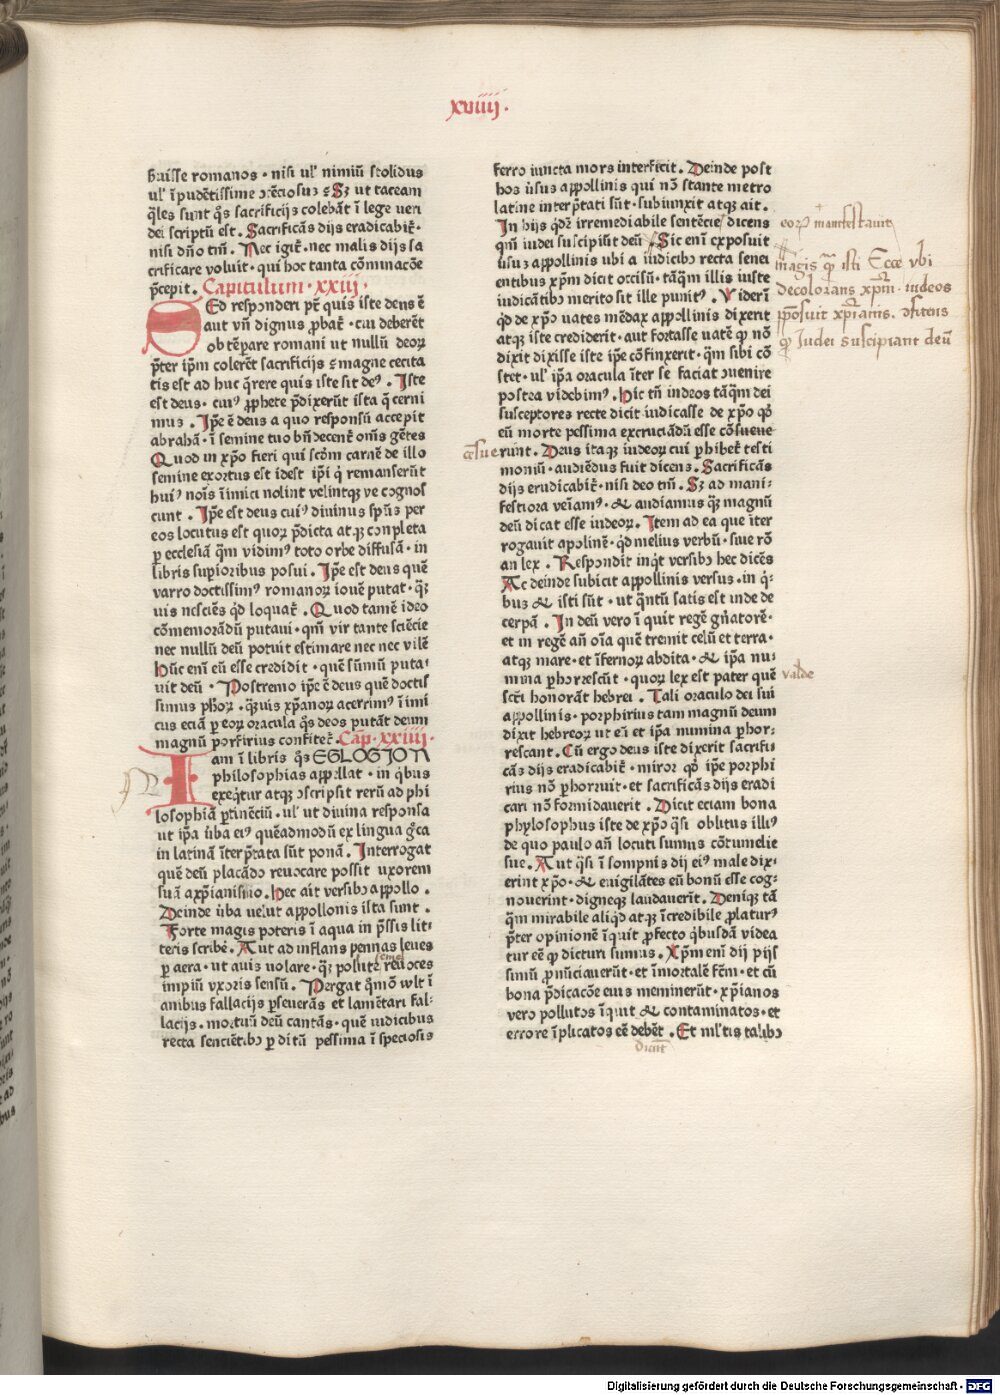 xviiij.
buisse romanos · nisi ul' nimiū stolidus
ul' īpudētissime ↄtēciosuꝫ ⁊ Sꝫ ut taceam
q̄les sunt q̄s sacrificijs colebāt ī lege ueri
dei scriptū est . Sacrificās dijs eradicabit̄·
nisi dño tm̄ . Nec igit̄ · nec malis dijs sa
crificare voluit · qui hoc tanta cōminacōe
p̄cepit . Capitulum · xxiij ·
Sed responderi pt̄ quis iste deus ē
aut vn̄ dignus ꝓbat̄ · cui deberēt
obtēpare romani ut nullū deoꝝ
p̄ter ip̄m colerēt sacrificijs ⁊ magne cecita
tis est ad huc q̄rere quis iste sit de⁹ . Iste
est deus · cui⁹ ꝓphete p̄dixerūt ista q̄ cerni
mus . Ip̄e ē deus a quo responsū accepit
abrahā · ī semine tuo bn̄decent̄ om̄s gētes
Quod in xp̄o fieri qui scd̄m carnē de illo
semine exortus est idest ip̄i q̄ remanserūt
hui⁹ nois īimici nolint velintqꝫ ve cognos
cunt . Ip̄e est deus cui⁹ diuinus sp̄us per
eos locutus est quoꝝ p̄dicta atqꝫ conpleta
ꝑ ecclesiā q̄m vidim⁹ toto orbe diffusā · in
libris supioribus posui . Ip̄e est deus quē
varro doctissim⁹ romanoꝝ iouē putat · q̄ꝫ
uis nesciēs q̄d loquat̄ . Quod tamē ideo
cōmemorādū putaui · qm̄ vir tante sciēcie
nec nullū deū potuit estimare nec nec vilē
hūc enī eū esse credidit · quē sūmū puta⸗
uit deū · Postremo ip̄e ē deus quē doctis
simus ph̄oꝝ · q̄ꝫuis xp̄anoꝝ acerrim⁹ īimi
cus eciā ꝑ eoꝝ oracula q̄s deos putāt deum
magnū porfirius confitet̄ . Cap̄ · xxiiij ·
Nam ī libris q̄s EGLOGION
philosophias appellat · in q̄bus
exeq̄tur atqꝫ ↄscripsit rerū ad phi
losophiā ꝑtinēciū · ul' ut diuina responsa
ut ip̄a ūba ei⁹ quēadmodū ex lingua gr̄ca
in latinā īterp̄tata sūt ponā . Interrogat
quē deū placādo reuocare possit uxorem
suā axp̄ianismo . hec ait versibꝯ appollo .
Deinde ūba uelut appollonis ista sunt .
Forte magis poteris ī aqua in p̄ssis lit⸗
teris scribē . Aut ad inflans pennas leues
ꝑ aera · ut auis uolare · q̄ꝫ pollute reuoces
semel
impiū vxoris sensū . Pergat q̄mō wlt ī
anibus fallacijs ꝑseuerās et lamētari fal⸗
lacijs · mortuū deū cantās · quē iudicibus
recta senciētibꝯ ꝑditū pessima ī speciosis
ferro iuncta mors interficit . Deinde post
hos ūsus appollinis qui nō stante metro
latine interp̄tati sūt · subiunxit atqꝫ ait .
In hijs q̄dꝫ irremediabile sentēcie dicens
qm̄ iudei suscipiūt deū Sic enī exposuit
ūsuꝫ appollinis ubi a iudicibꝯ recta senci
entibus xp̄m dicit occisū · tāq̄m illis iuste
iudicātibꝯ merito sit ille punit⁹ . Viderī
q̄d de xp̄o uates mēdax appollinis dixerit
atqꝫ iste crediderit · aut fortasse uatē ꝙ nō
dixit dixisse iste ip̄e cōfinxerit · q̄m sibi cō
stet · ul' ip̄a oracula īter se faciat ↄuenire
postea videbim⁹ . Hic tn̄ iudeos tāq̄m dei
susceptores recte dicit iudicasse de xp̄o qꝫ
eū morte pessima excruciādū esse cōsueue
cēsue runt . Deus itaqꝫ iudeoꝝ cui ꝑhibet̄ testi
moniū · audiēdus fuit dicens . Sacrificās
dijs erudicabit̄ · nisi deo tm̄ . Sꝫ ad mani⸗
festiora veīam⁹ · & audiamus q̄ꝫ magnū
deū dicat esse iudeoꝝ . Item ad ea que īter
rogauit apolinē · q̄d melius verbū · siue rō
an lex . Respondit inq̄t versibꝯ hec dicēs
Ac deinde subicit appollinis versus · in q̄⸗
buꝫ & isti sūt · ut q̄ntū satis est inde de
cerpā . In deū vero ī quit regē gn̄atorē ·
et in regē an̄ oīa quē tremit celū et terra ·
atqꝫ mare · et īfernoꝝ abdita · & ip̄a nu⸗
mina ꝑhorrescūt · quoꝝ lex est pater quē
valde
sc̄ti honorāt hebrei . Tali oraculo dei sui
appollinis · porphirius tam magnū deum
dixit hebreoꝝ ut eū et ip̄a numina ꝑhor⸗
rescant . Cū ergo deus iste dixerit sacrifi
cās dijs eradicabit̄ · miror qꝫ ip̄e porphi
rius nō ꝑhorruit · et sacrificās dijs eradi
cari nō formidauerit . Dicit eciam bona
phylosophus iste de xp̄o q̄si oblitus illi⁹
de quo paulo an̄ locuti sumus cōtumelie
sue . Aut q̄si ī sompnis dij ei⁹ male dix⸗
erint xp̄o · & euigilātes eū bonū esse cog⸗
nouerint · digneqꝫ laudauerit . Deniqꝫ tā
q̄m mirabile aliq̄d atqꝫ īcredibile ꝓlatur⁹
p̄ter opinionē īquit ꝓfecto q̄busdā videa
tur eē ꝙ dicturi sumus . Xp̄m enī dij pijs
simū ꝓnūciauerūt · et īmortalē fc̄m · et cū
bona p̄dicacōe eius meminerūt · xp̄ianos
vero pollutos īquit & contaminatos · et
errore īplicatos eē debēt . Et ml'tis talibꝯ
dicūt
eoꝝ manifestauit
magis q̄ isti Ecce vbi
decolorans xp̄m · iudeos
p̄posuit xp̄ianis . ↄfitens
ꝙ Judei suscipiant deū
Digitalisierung gefördert durch die Deutsche Forschungsgemeinschaft - DFG